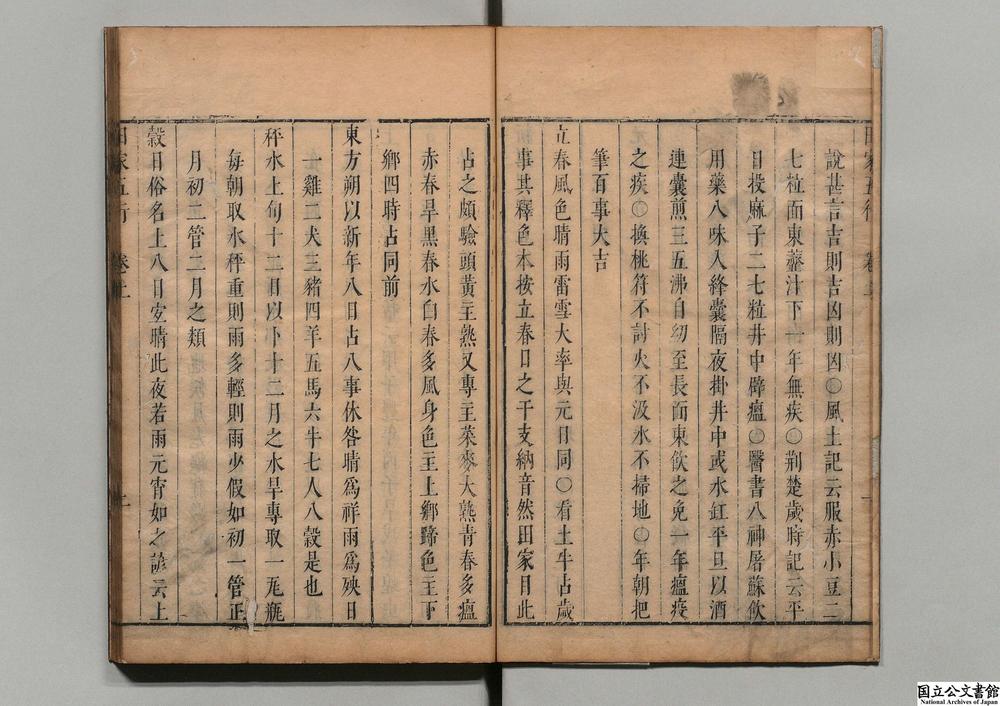 說甚言吉則吉凶則凶○風土記云服赤小豆二
七粒面東虀汁下一年無疾○荆楚歲時記云平
旦投麻子二七粒井中辟瘟○醫書八神屠蘇飲
用藥八味入絳囊隔夜掛井中或水缸平旦以酒
連囊煎三五沸自幼至長面東飲之免一年瘟疫
之疾○換桃符不討火不汲水不掃地○年朝把
筆百事大吉
立春風色晴雨雷雪大率與元日同○看土牛占歲
事其釋色本按立春日之干支納音然田家目此
占之頗驗頭黃主熟又專主菜麥大熟青春多瘟
赤春旱黑春水白春多風身色主上鄉蹄色主下
鄉四時占同前
東方朔以新年八日占八事休咎晴爲祥雨爲殃日
一雞二犬三豬四羊五馬六牛七人八穀是也
秤水上旬十二日以卜十二月之水旱專取一瓦瓶
每朝取水秤重則雨多輕則雨少假如初一管正
月初二管二月之類
穀日俗名上八日宜晴此夜若雨元宵如之諺云上
田家五行 卷上